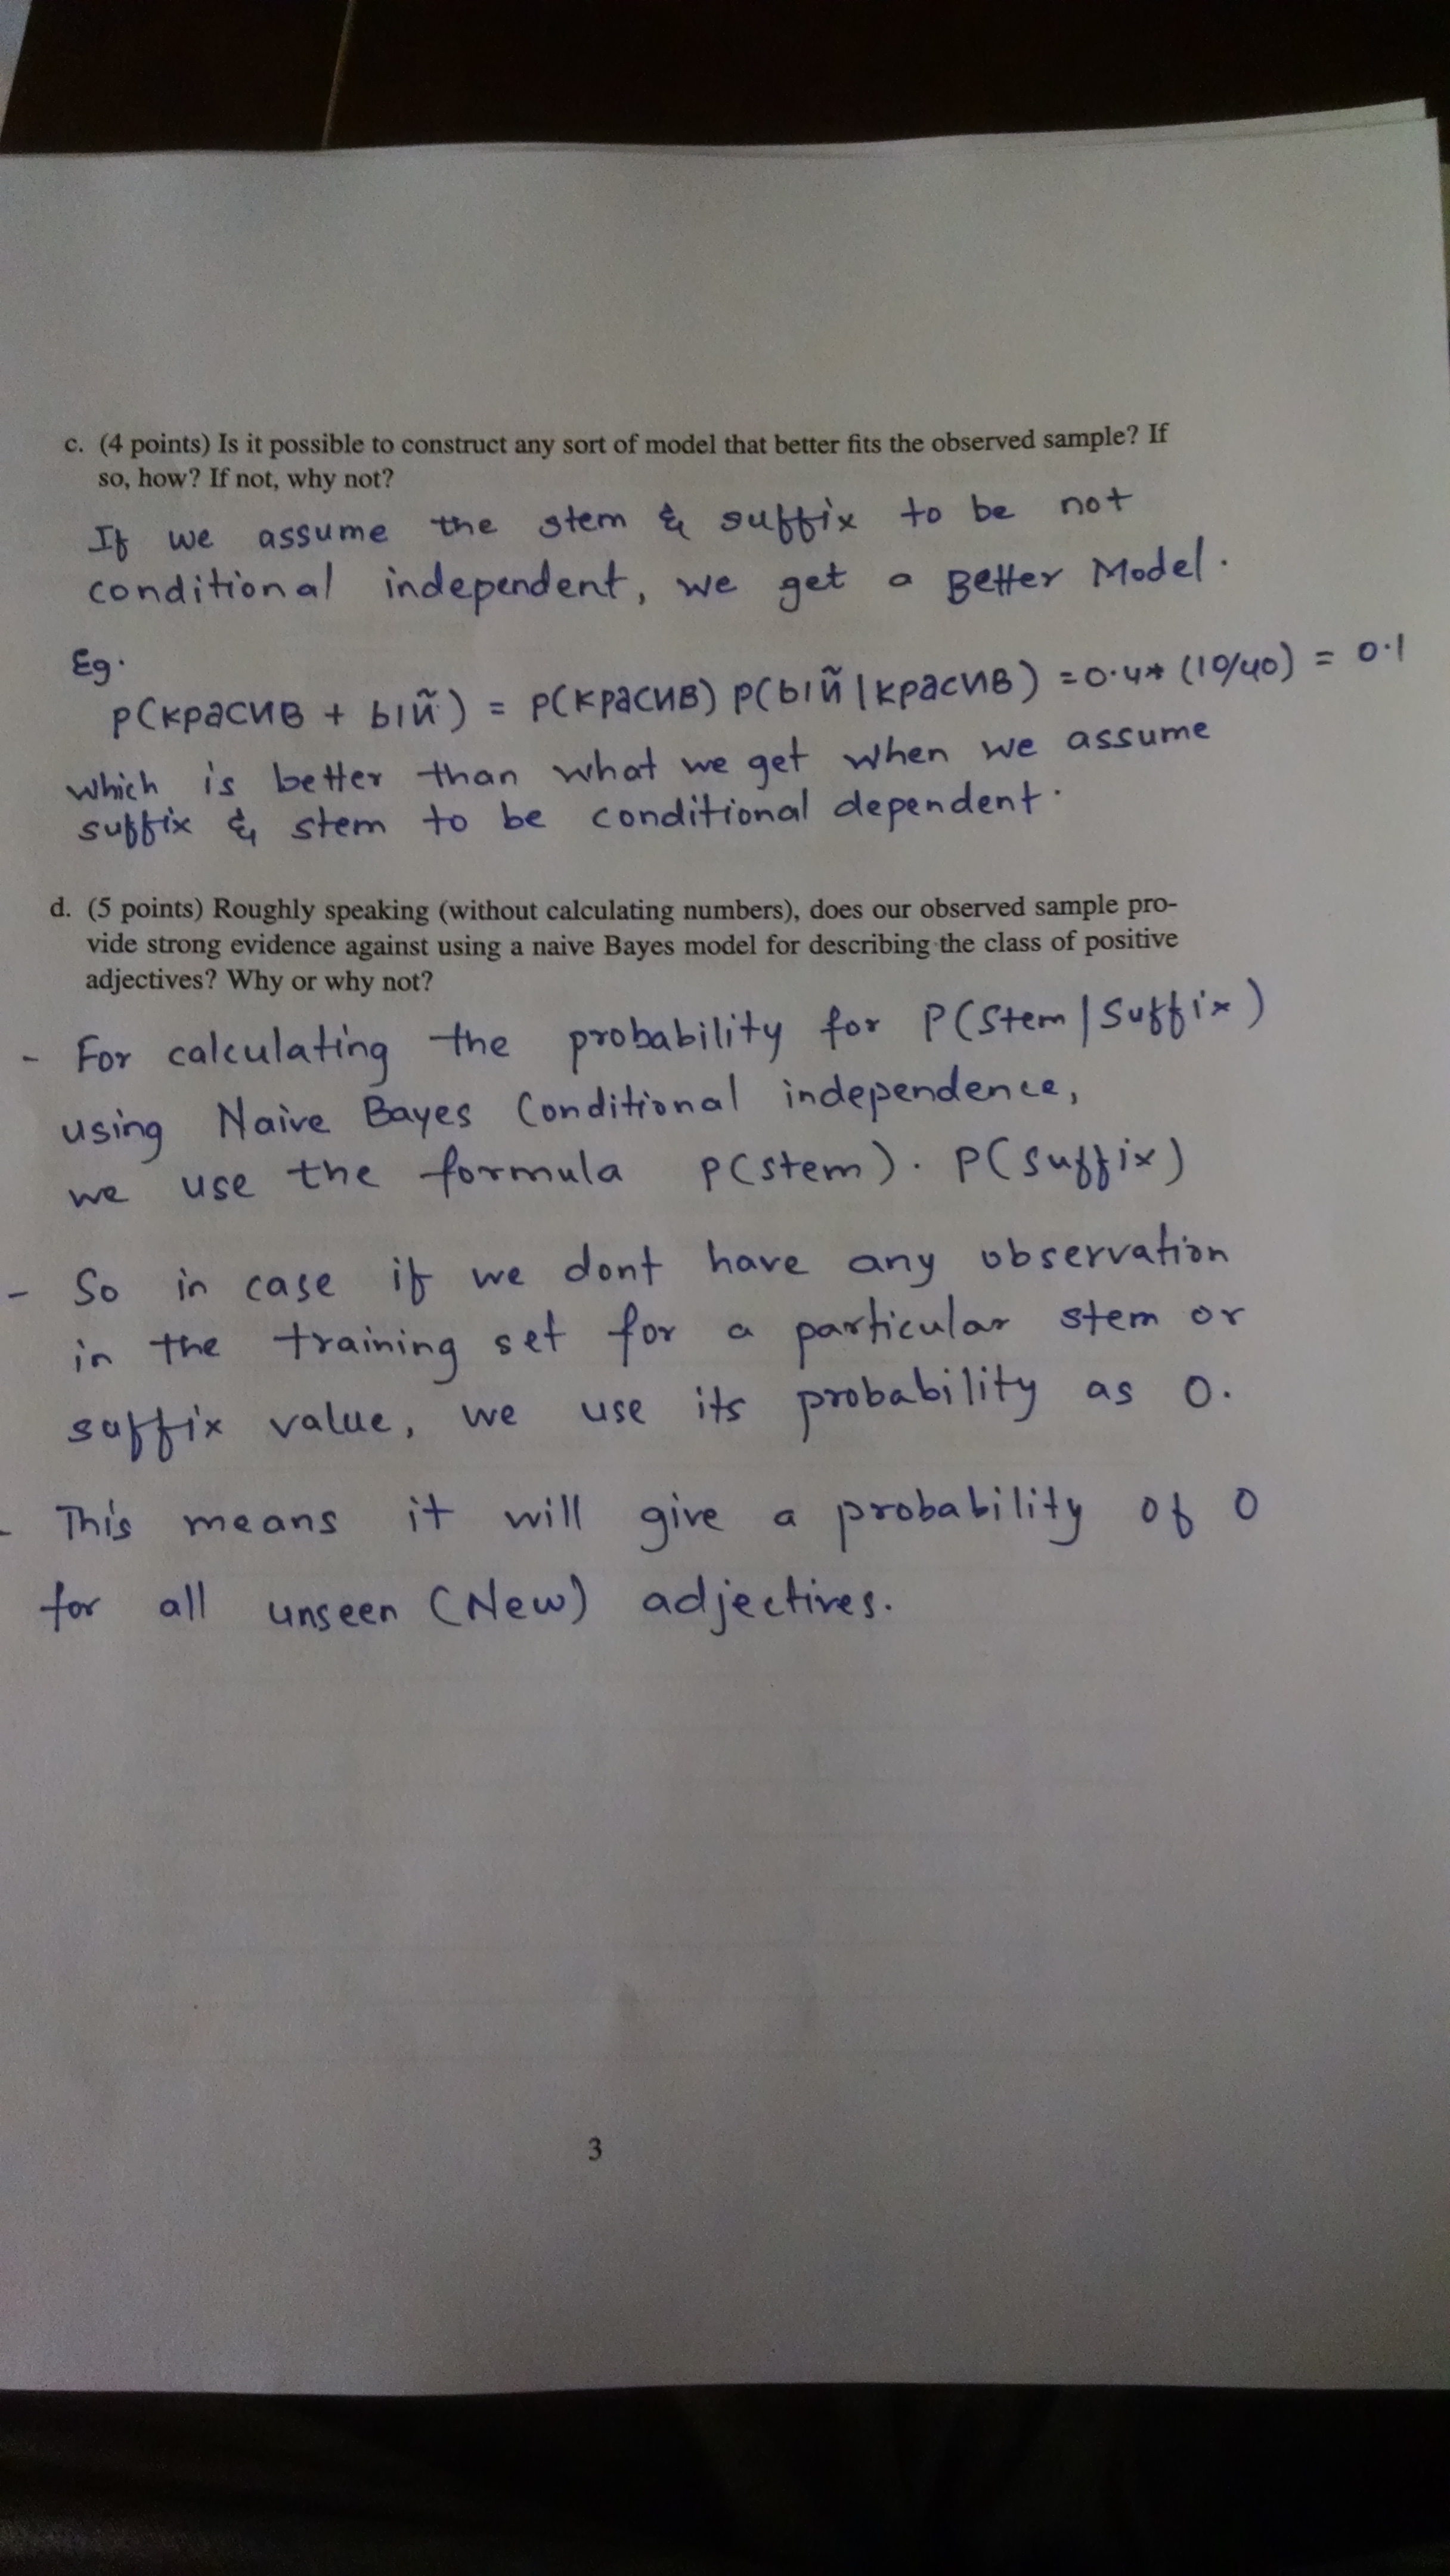 c. (4 points) Is it possible to construct any sort of model that better fits the observed sample? If
so, how? If not, why not?
If we assume the stem & suffix to be not
conditional independent, we get a Better Model.
Eg.
P(красив + ый) = P(красив) P(ый | красив) = 0.4 * (10/40) = 0.1
which is better than what we get when we assume
suffix & stem to be conditional dependent.
d. (5 points) Roughly speaking (without calculating numbers), does our observed sample pro-
vide strong evidence against using a naive Bayes model for describing the class of positive
adjectives? Why or why not?
- For calculating the probability for P(Stem | Suffix)
using Naive Bayes Conditional independence,
we use the formula P(stem) . P(suffix)
- So in case if we dont have any observation
in the training set for a particular stem or
suffix value, we use its probability as 0.
- This means it will give a probability of 0
for all unseen (New) adjectives.
3